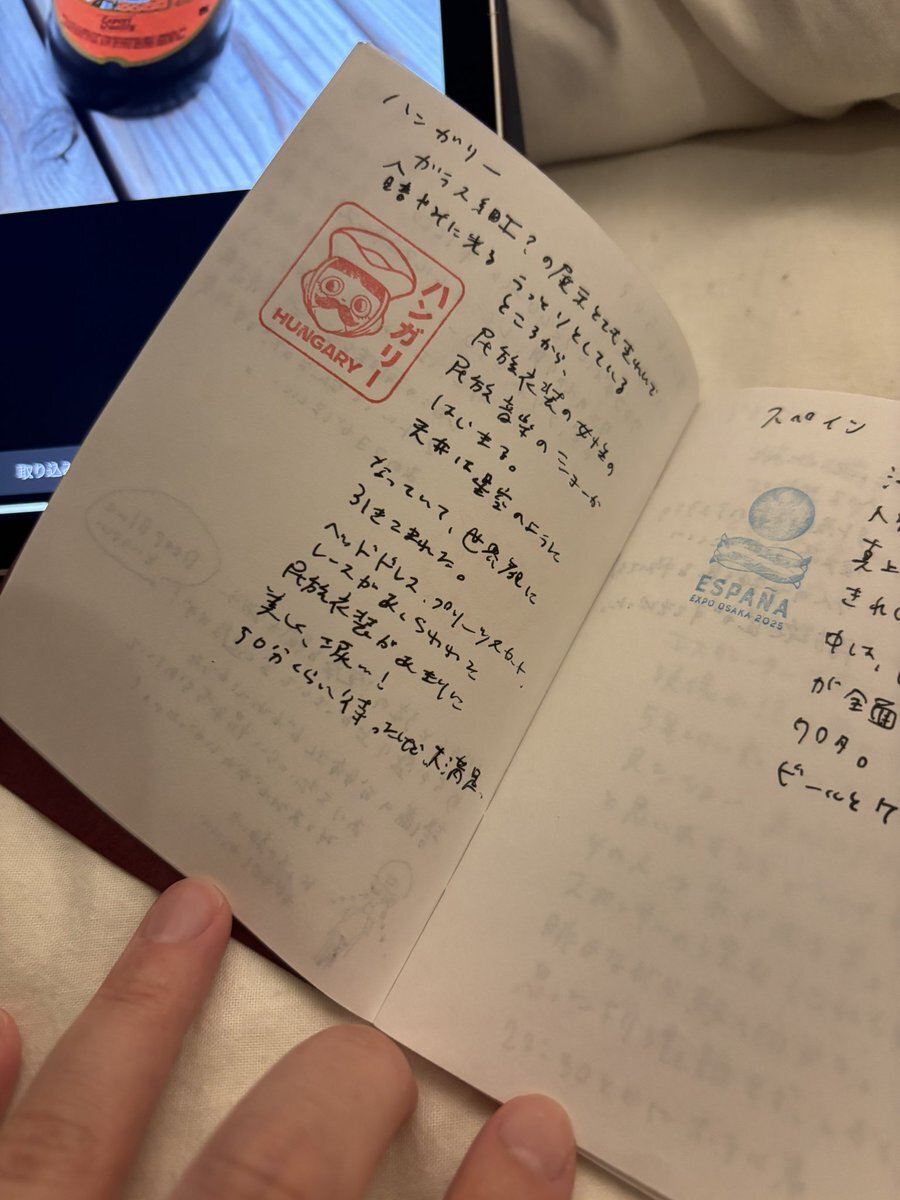 ハンガリー
ガラス細工?の展示とてもきれいで
暗やみに光る うっとりとしている
ところから、
民族衣装の女性の
民族音楽のショーが
はじまる。
天井は星空のように
なっていて、世界観に
引きこまれた。
ヘッドドレス、プリーツスカート、
レースがあしらわれた
民族衣装があまりに
美しく、涙〜!
90分くらい待ったけど、大満足。
ハンガリー
HUNGARY
スペイン
ESPAÑA
EXPO OSAKA 2025
人
真上
きれい
中には、
が全面
クロタロ
ビールとワ
取り込
Export
Quality